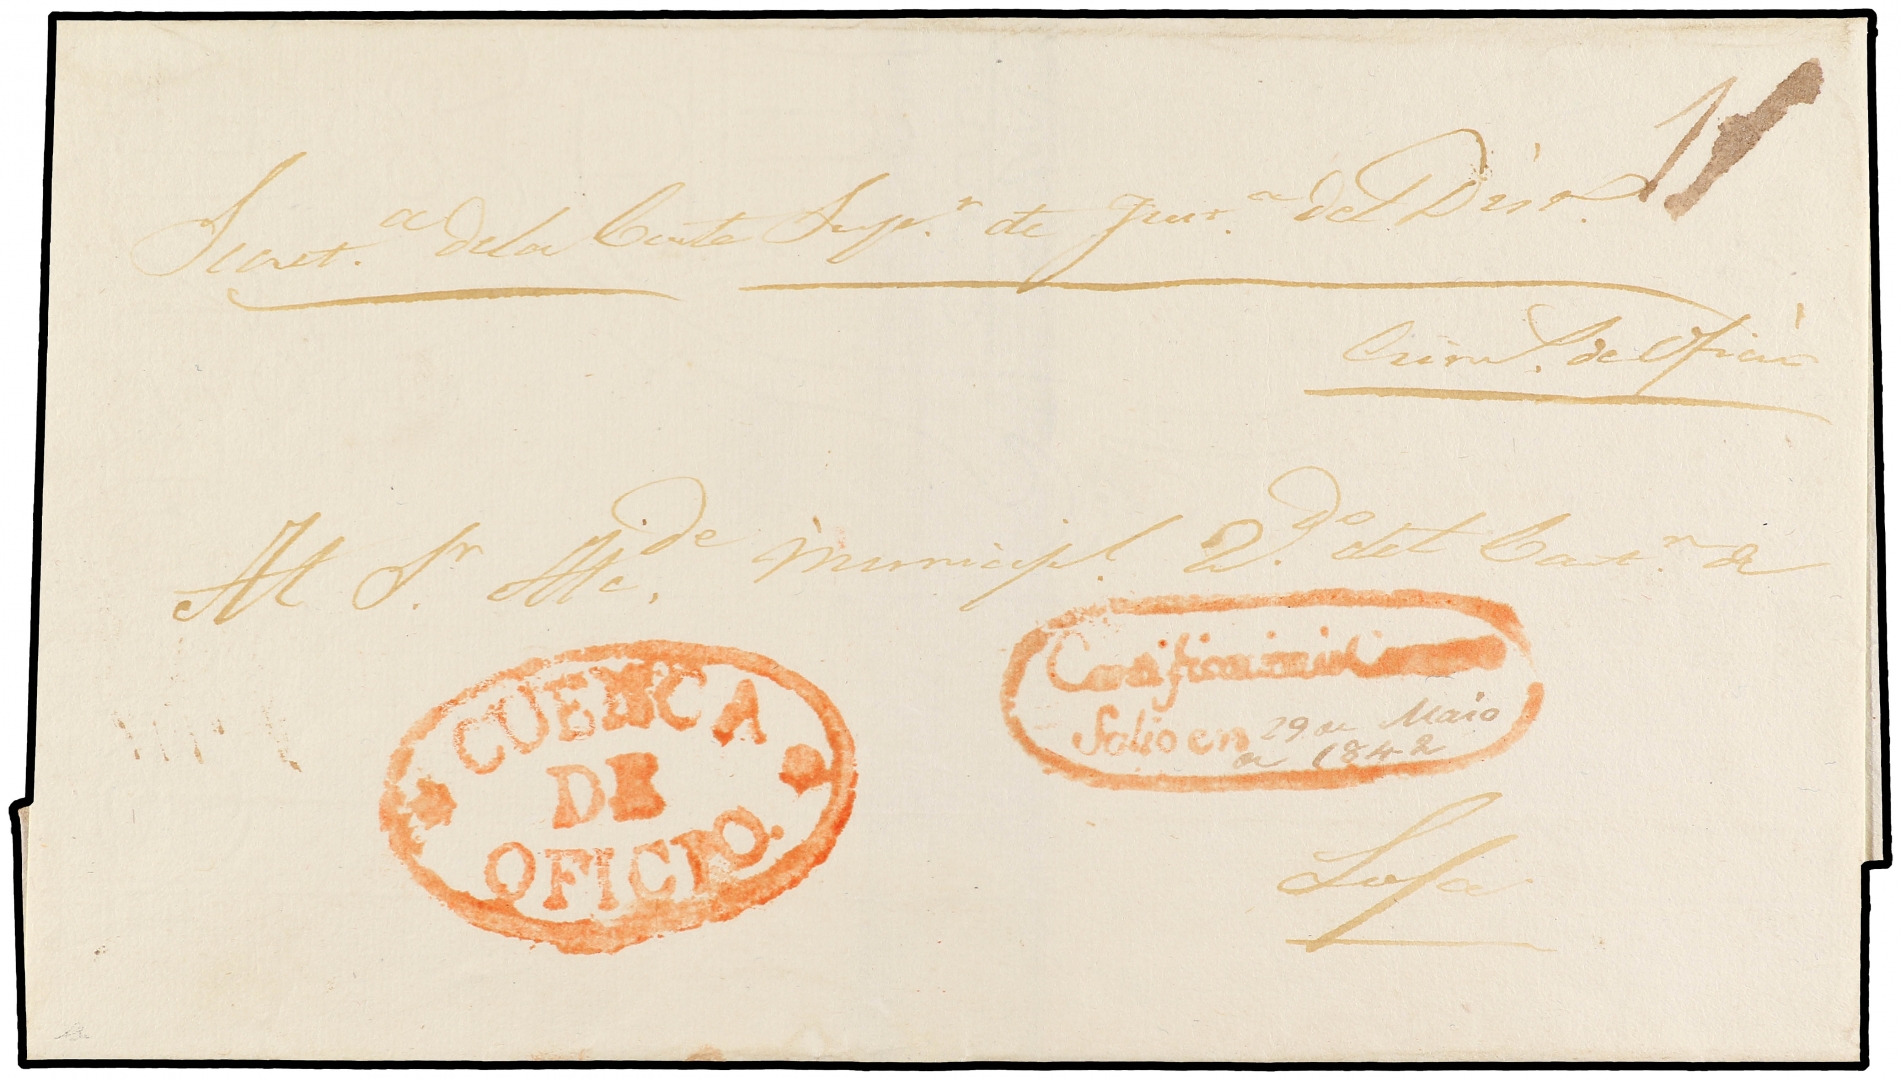 Secret.ª de la Corte Sup.r de Just.ª del Dist.
Crim.l de Oficio
Al Sr. Alc.de Municipl. 2.do del Cant.n de
CUENCA
DE
OFICIO.
Salio en 29 de Maio
de 1842
Loja